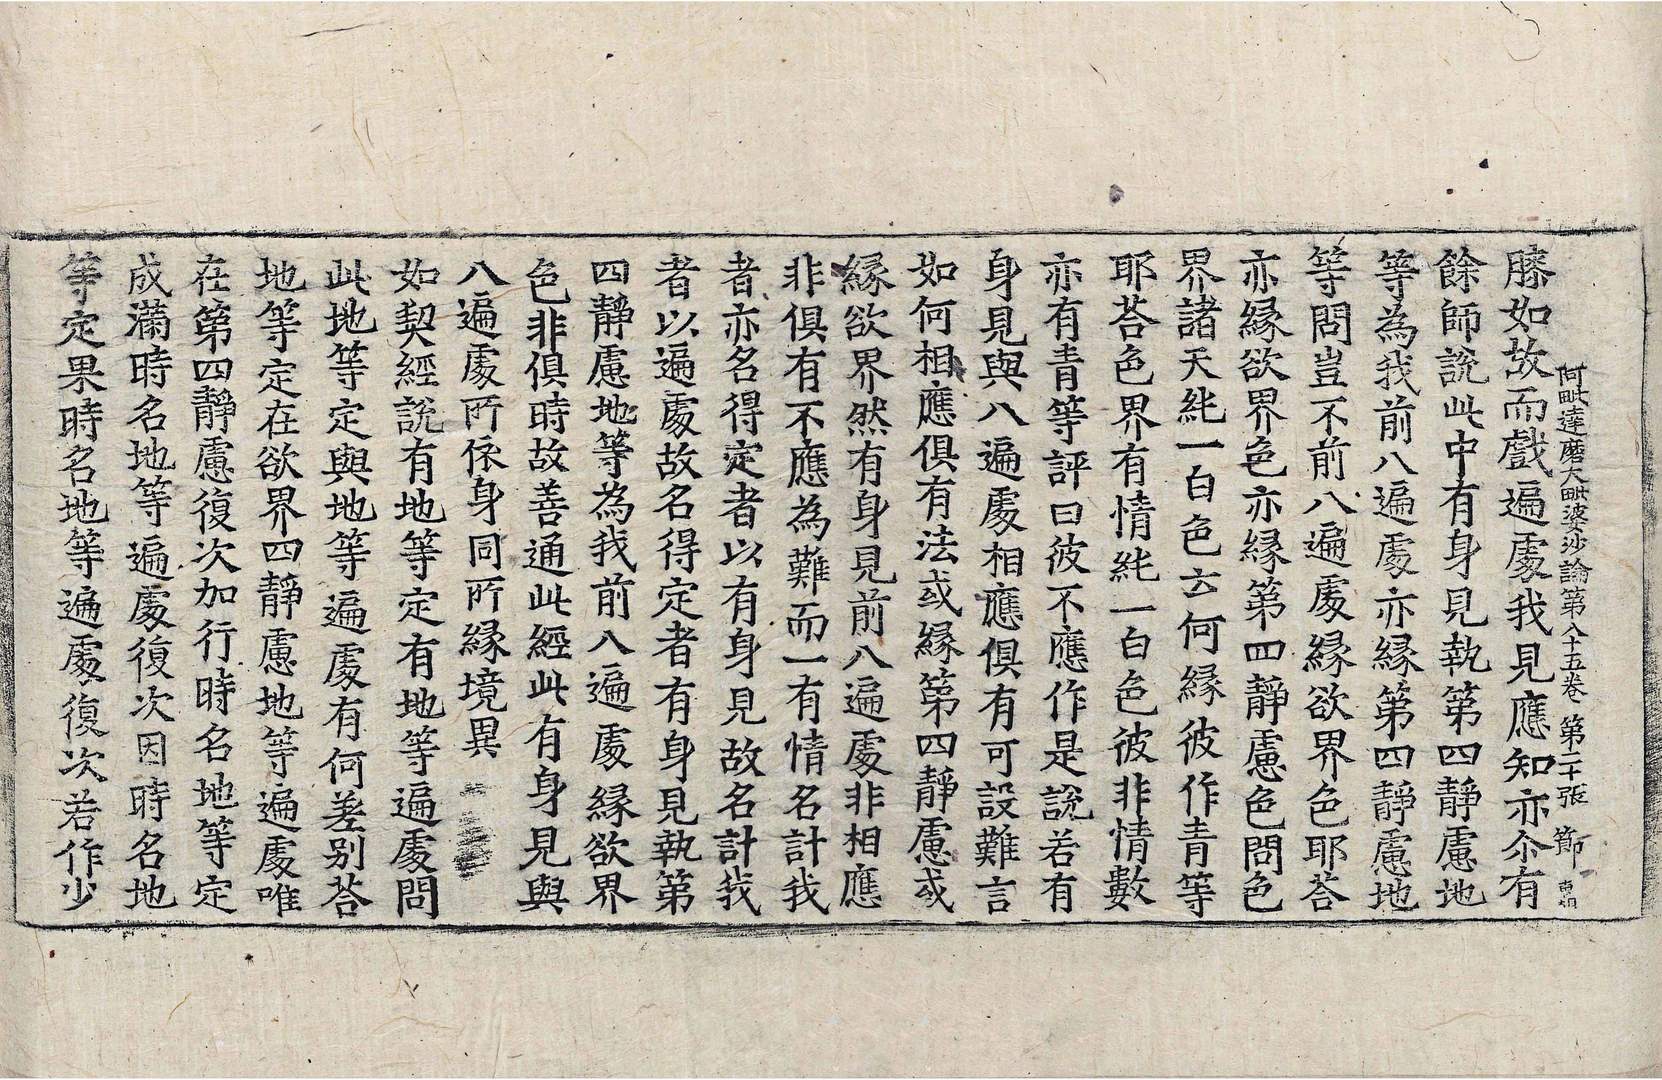 阿毗達磨大毗婆沙論第八十五卷 第二十張 節
膝如故而戲遍處我見應知亦尒有
餘師說此中有身見執第四靜慮地
等為我前八遍處亦緣第四靜慮地
等問豈不前八遍處緣欲界色耶荅
亦緣欲界色亦緣第四靜慮色問色
界諸天純一白色云何緣彼作青等
耶荅色界有情純一白色彼非情數
亦有青等評曰彼不應作是說若有
身見與八遍處相應俱有可設難言
如何相應俱有法或緣第四靜慮或
緣欲界然有身見前八遍處非相應
非俱有不應為難而一有情名計我
者亦名得定者以有身見故名計我
者以遍處故名得定者有身見執第
四靜慮地等為我前八遍處緣欲界
色非俱時故善通此經此有身見與
八遍處所依身同所緣境異
如契經說有地等定有地等遍處問
此地等定與地等遍處有何差別荅
地等定在欲界四靜慮地等遍處唯
在第四靜慮復次加行時名地等定
成滿時名地等遍處復次因時名地
等定果時名地等遍處復次若作少